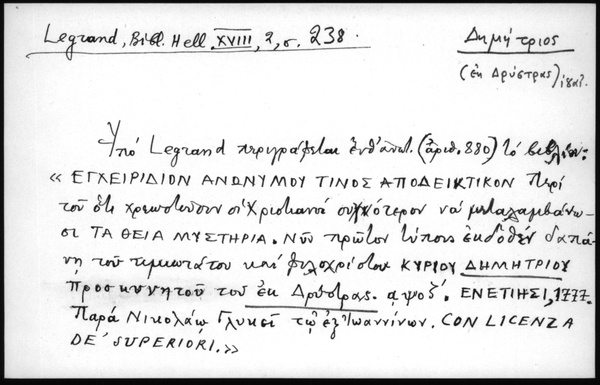 Legrand, Bibl. Hell. XVIII, 2, σ. 238.
Δημήτριος
(ἐκ Δρύστρας)
Ὑπό Legrand περιγράφεται ἐνθ' ἀνωτ. (ἀριθ. 880) τό βιβλίον:
« ΕΓΧΕΙΡΙΔΙΟΝ ΑΝΩΝΥΜΟΥ ΤΙΝΟΣ ΑΠΟΔΕΙΚΤΙΚΟΝ Περί
τοῦ ὅτι χρεωστοῦσιν οἱ Χριστιανοί συχνότερον νά μεταλαμβάνω-
σι ΤΑ ΘΕΙΑ ΜΥΣΤΗΡΙΑ. Νῦν πρῶτον τύποις ἐκδοθέν δαπά-
νῃ τοῦ τιμιωτάτου καί φιλοχρίστου ΚΥΡΙΟΥ ΔΗΜΗΤΡΙΟΥ
Προσκυνητοῦ τοῦ ἐκ Δρύστρας. αψοζ΄. ΕΝΕΤΙΗΣΙ, 1777.
Παρά Νικολάῳ Γλυκεῖ τῷ ἐξ Ἰωαννίνων. CON LICENZA
DE' SUPERIORI. »